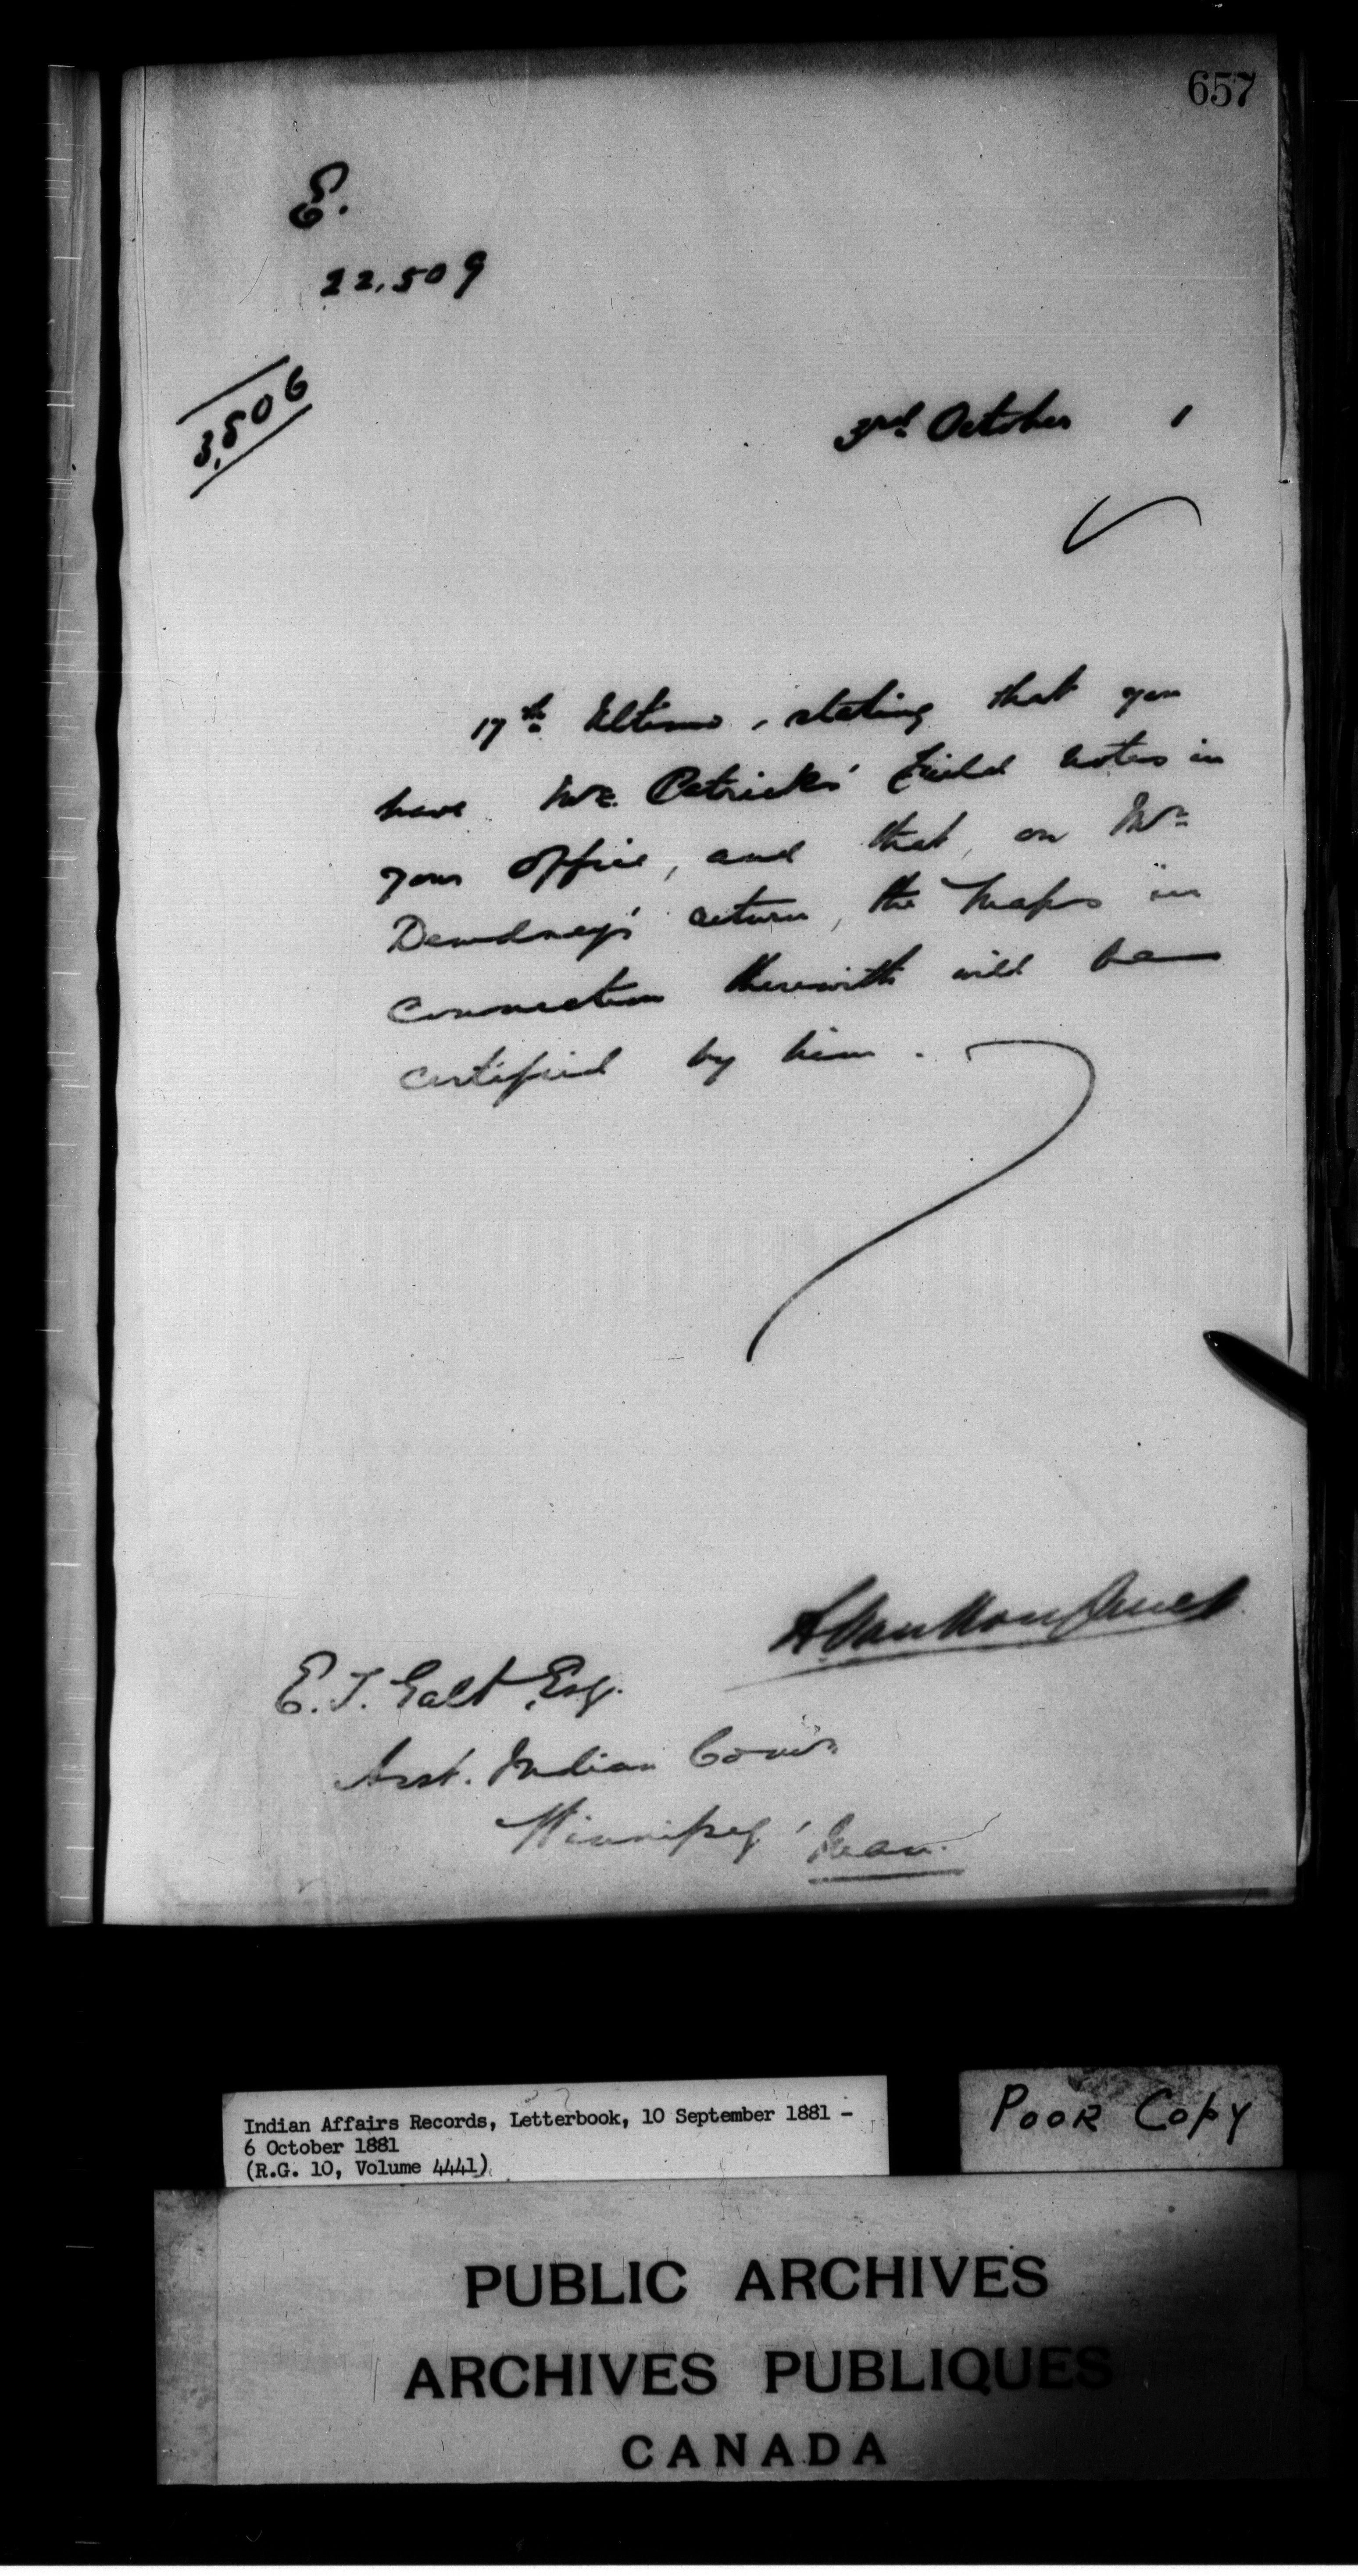 657
E.
22,509
3,506
3rd October 1
17th Ultimo, stating that you
have Mr. Patricks' Field notes in
your office, and that, on Mr
Dewdney's return, the Maps in
connection therewith will be
certified by him.
L. VanKoughnet
E. T. Galt, Esq.
Asst. Indian Comr
Winnipeg, Man.
Indian Affairs Records, Letterbook, 10 September 1881 -
6 October 1881
(R.G. 10, Volume 4441)
POOR COPY
PUBLIC ARCHIVES
ARCHIVES PUBLIQUES
CANADA